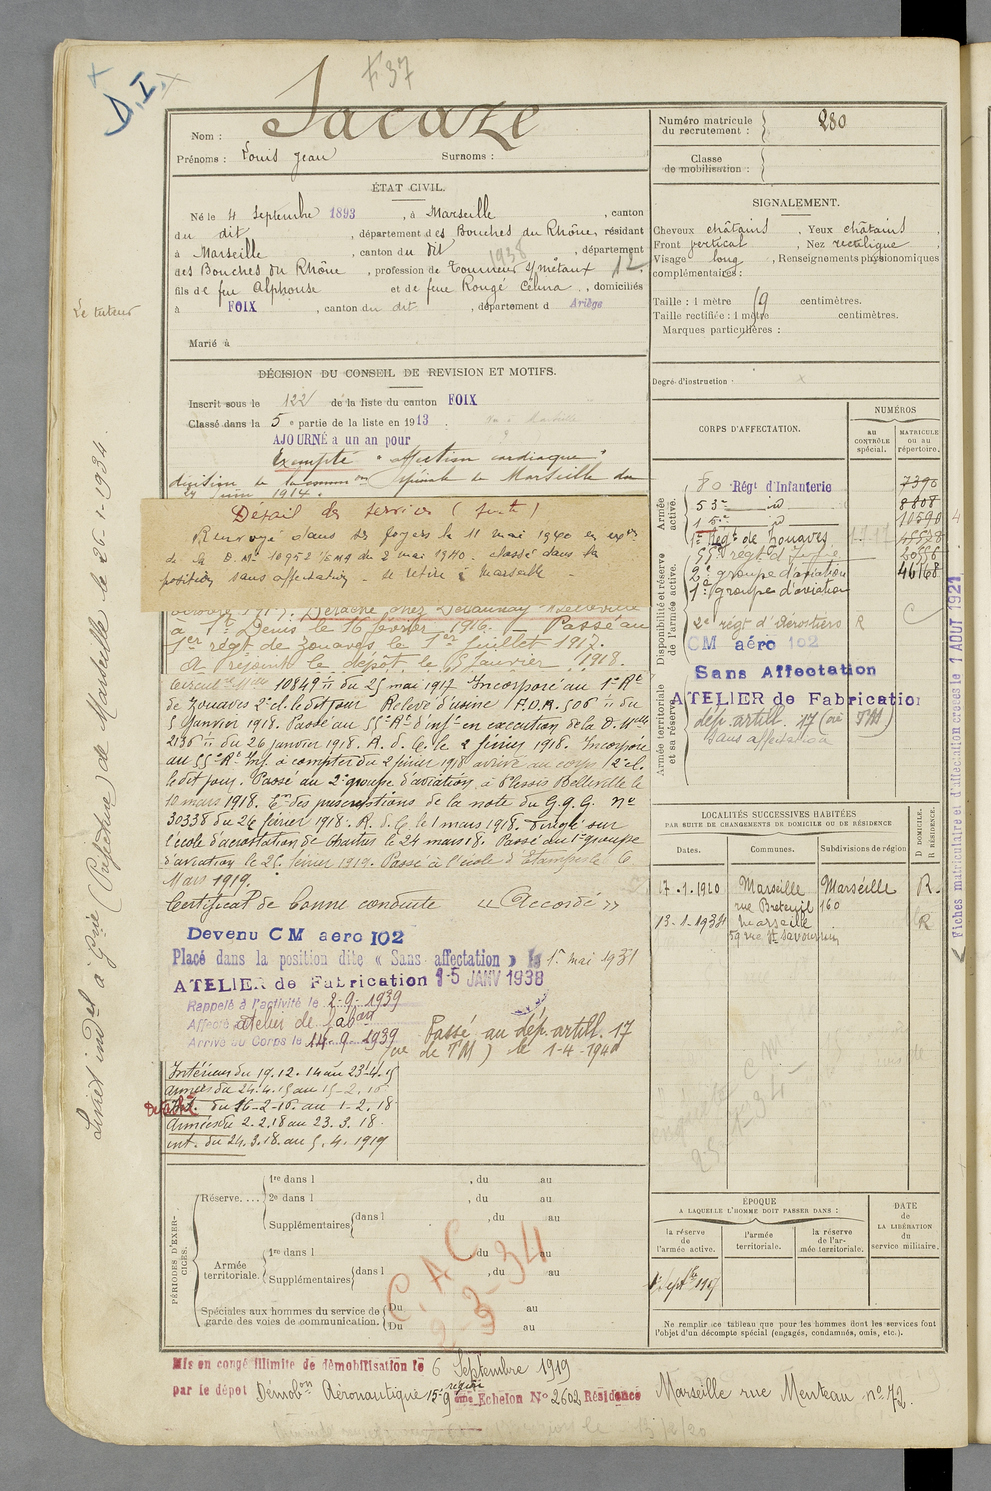 F 37
D.I.
Nom : Lacaze
Prénoms : Louis Jean Surnoms :
Numéro matricule du recrutement : 280
Classe de mobilisation :
ÉTAT CIVIL.
Né le 4 Septembre 1893, à Marseille, canton
du dit, département des Bouches du Rhône, résidant
à Marseille, canton du dit, département
des Bouches du Rhône, profession de Tourneur s/métaux
1938
fils de feu Alphonse et de feue Rougé Célina, domiciliés
à FOIX, canton du dit, département d Ariège
Marié à
Le tuteur
SIGNALEMENT.
Cheveux châtains, Yeux châtains,
Front vertical, Nez rectiligne,
Visage long, Renseignements physionomiques
complémentaires :
Taille : 1 mètre 69 centimètres.
Taille rectifiée : 1 mètre centimètres.
Marques particulières :
Degré d'instruction :
DÉCISION DU CONSEIL DE REVISION ET MOTIFS.
Inscrit sous le 122 de la liste du canton FOIX
Classé dans la 5e partie de la liste en 1913
AJOURNÉ a un an pour
Exempté "affection cardiaque"
division de la spéciale de Marseille du
24 juin 1914.
Détail des services (suite)
Renvoyé dans ses foyers le 11 mai 1940 en
de la D.M. 10952 du 2 mai 1940. classé dans la
position sans affectation - se retire à Marseille -
Détaché chez Delaunay Belleville
à St Denis le 16 février 1916. Passé au
1er régt de zouaves le 1er juillet 1917.
A rejoint le dépôt le 5 Janvier 1918.
10849 du 25 mai 1917 Incorporé au 1er Rt
de Zouaves 2e cl. le dit jour Relevé d'usine du
5 Janvier 1918. Passé au 55e Rt d'inf en exécution de la D. Melle
2136 du 26 janvier 1918. A. d. C. le 2 février 1918. Incorporé
au 55e Rt Inf. à compter du 2 février 1918 arrivé au corps 2e cl.
le dit jour. Passé au 2e groupe d'aviation à Plessis Belleville le
10 mars 1918. des prescriptions de la note du G.Q.G. no
30338 du 26 février 1918. R. d. C. le 1 mars 1918. Dirigé sur
l'école d'aérostation de Chartres le 24 mars 18. Passé au 1er groupe
d'aviation le 25 février 1919. Passé à l'école d'Etampes le 6
Mars 1919.
Certificat de bonne conduite « Accordé »
Devenu CM aero 102
Placé dans la position dite « Sans affectation » le 15 mai 1931
ATELIER de Fabrication 15 JANV 1938
Rappelé à l'activité le 2-9-1939
Affecté atelier de fabon
Arrivé au Corps le 14-9-1939
Passé au dép. artill. 17
de TM) le 1-4-1940
Intérieur du 19.12.14 au 23-4-15
Armées du 24.4.15 au 15-2.16
Int. du 16-2-16. au 1-2.18
Armées du 2.2.18 au 23.3.18
int. du 24.3.18 au 5.4.1919
CORPS D'AFFECTATION.
NUMÉROS
au CONTRÔLE spécial.
MATRICULE ou au répertoire.
Armée active.
80 Régt d'Infanterie 7390
53e d° 8808
15e d° 10590
1er Régt de Zouaves
55e régt d'Inf
Disponibilité et réserve de l'armée active.
2e groupe d'aviation 46168
1er groupe d'aviation
2e régt d'Aérostiers R
CM aéro 102
Sans Affectation
Armée territoriale et sa réserve
ATELIER de Fabrication
dép. artill. 17 (TM)
Sans affectation
LOCALITÉS SUCCESSIVES HABITÉES
PAR SUITE DE CHANGEMENTS DE DOMICILE OU DE RÉSIDENCE
D DOMICILE. R RÉSIDENCE.
Dates. Communes. Subdivisions de région
17-1-1920 Marseille Marseille R.
rue Breteuil 160
13-1-1931 Marseille R
59 rue St Savournin
Fiches matriculaire et d'affectation créées le 1 AOUT 1921
Préfecture de Marseille le 26-1-1934
PÉRIODES D'EXERCICES.
Réserve....
1re dans l , du au
2e dans l , du au
Supplémentaires dans l , du au
Armée territoriale.
1re dans l , du au
Supplémentaires dans l , du au
Spéciales aux hommes du service de garde des voies de communication.
Du au
Du au
C.A.C
ÉPOQUE
A LAQUELLE L'HOMME DOIT PASSER DANS :
la réserve de l'armée active.
l'armée territoriale.
la réserve de l'armée territoriale.
DATE de LA LIBÉRATION du service militaire.
Ne remplir ce tableau que pour les hommes dont les services font
l'objet d'un décompte spécial (engagés, condamnés, omis, etc.).
Mis en congé illimité de démobilisation le 6 Septembre 1919
par le dépot Démobon Aéronautique 15e région
9 ème Echelon No 2602 Résidence Marseille rue Menteau no 72.